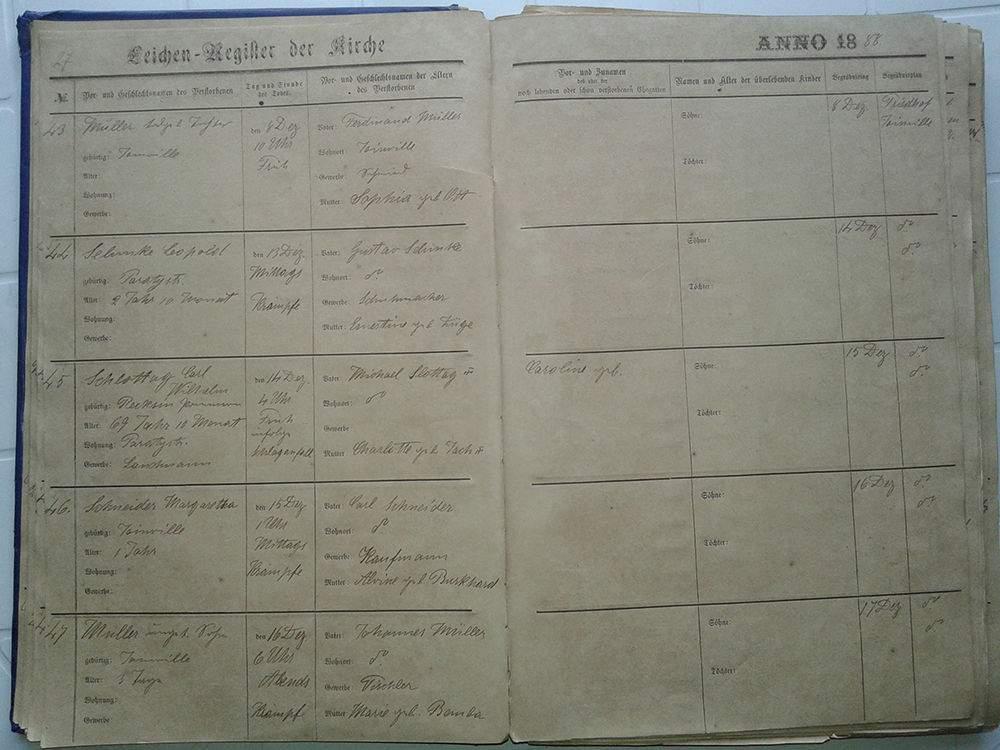 Leichen-Register der Kirche
ANNO 18 88
№ Vor- und Geschlechtsnamen des Verstorbenen Tag und Stunde des Todes. Vor- und Geschlechtsnamen der Eltern des Verstorbenen
Vor- und Zunamen des oder der noch lebenden oder schon verstorbenen Ehegatten Namen und Alter der überlebenden Kinder Begräbnisstag Begräbnissplan
43 Müller Tochter den 8 Dez Vater: Ferdinand Müller Söhne: 8 Dez Friedhof
gebürtig: Joinville 10 Uhr Wohnort: Joinville Joinville
Alter: Früh Gewerbe: Schmied Töchter:
Wohnung: Mutter: Sophia geb. Ott
Gewerbe:
44 Leopold den 13 Dez. Vater: Gustav Söhne: 14 Dez do
gebürtig: Paratystr. Mittags Wohnort: do do
Alter: 2 Jahr 10 Monat Krämpfe Gewerbe: Schuhmacher Töchter:
Wohnung: Mutter: Ernestine geb. Züge
Gewerbe:
45 Schlottag Carl den 14 Dez. Vater: Michael Slottag Caroline geb. Söhne: 15 Dez do
Wilhelm 4 Uhr Wohnort: do do
gebürtig: Früh
Alter: 69 Jahr 10 Monat infolge Gewerbe Töchter:
Wohnung: Paratystr. Schlaganfall Mutter Charlotte geb.
Gewerbe: Landmann
46. Schneider Margaretha den 15 Dez Vater: Carl Schneider Söhne: 16 Dez do
gebürtig: Joinville 1 Uhr Wohnort: do do
Alter: 1 Jahr Mittags Gewerbe: Kaufmann Töchter:
Wohnung: Krämpfe Mutter: Alvine geb. Burkhard
Gewerbe:
47 Müller Sohn den 16 Dez Vater: Johannes Müller Söhne: 17 Dez do
gebürtig: Joinville 6 Uhr Wohnort: do. do
Alter: 3 Tage Abends Gewerbe: Tischler Töchter:
Wohnung:
Gewerbe Krämpfe Mutter Marie geb. Bemba